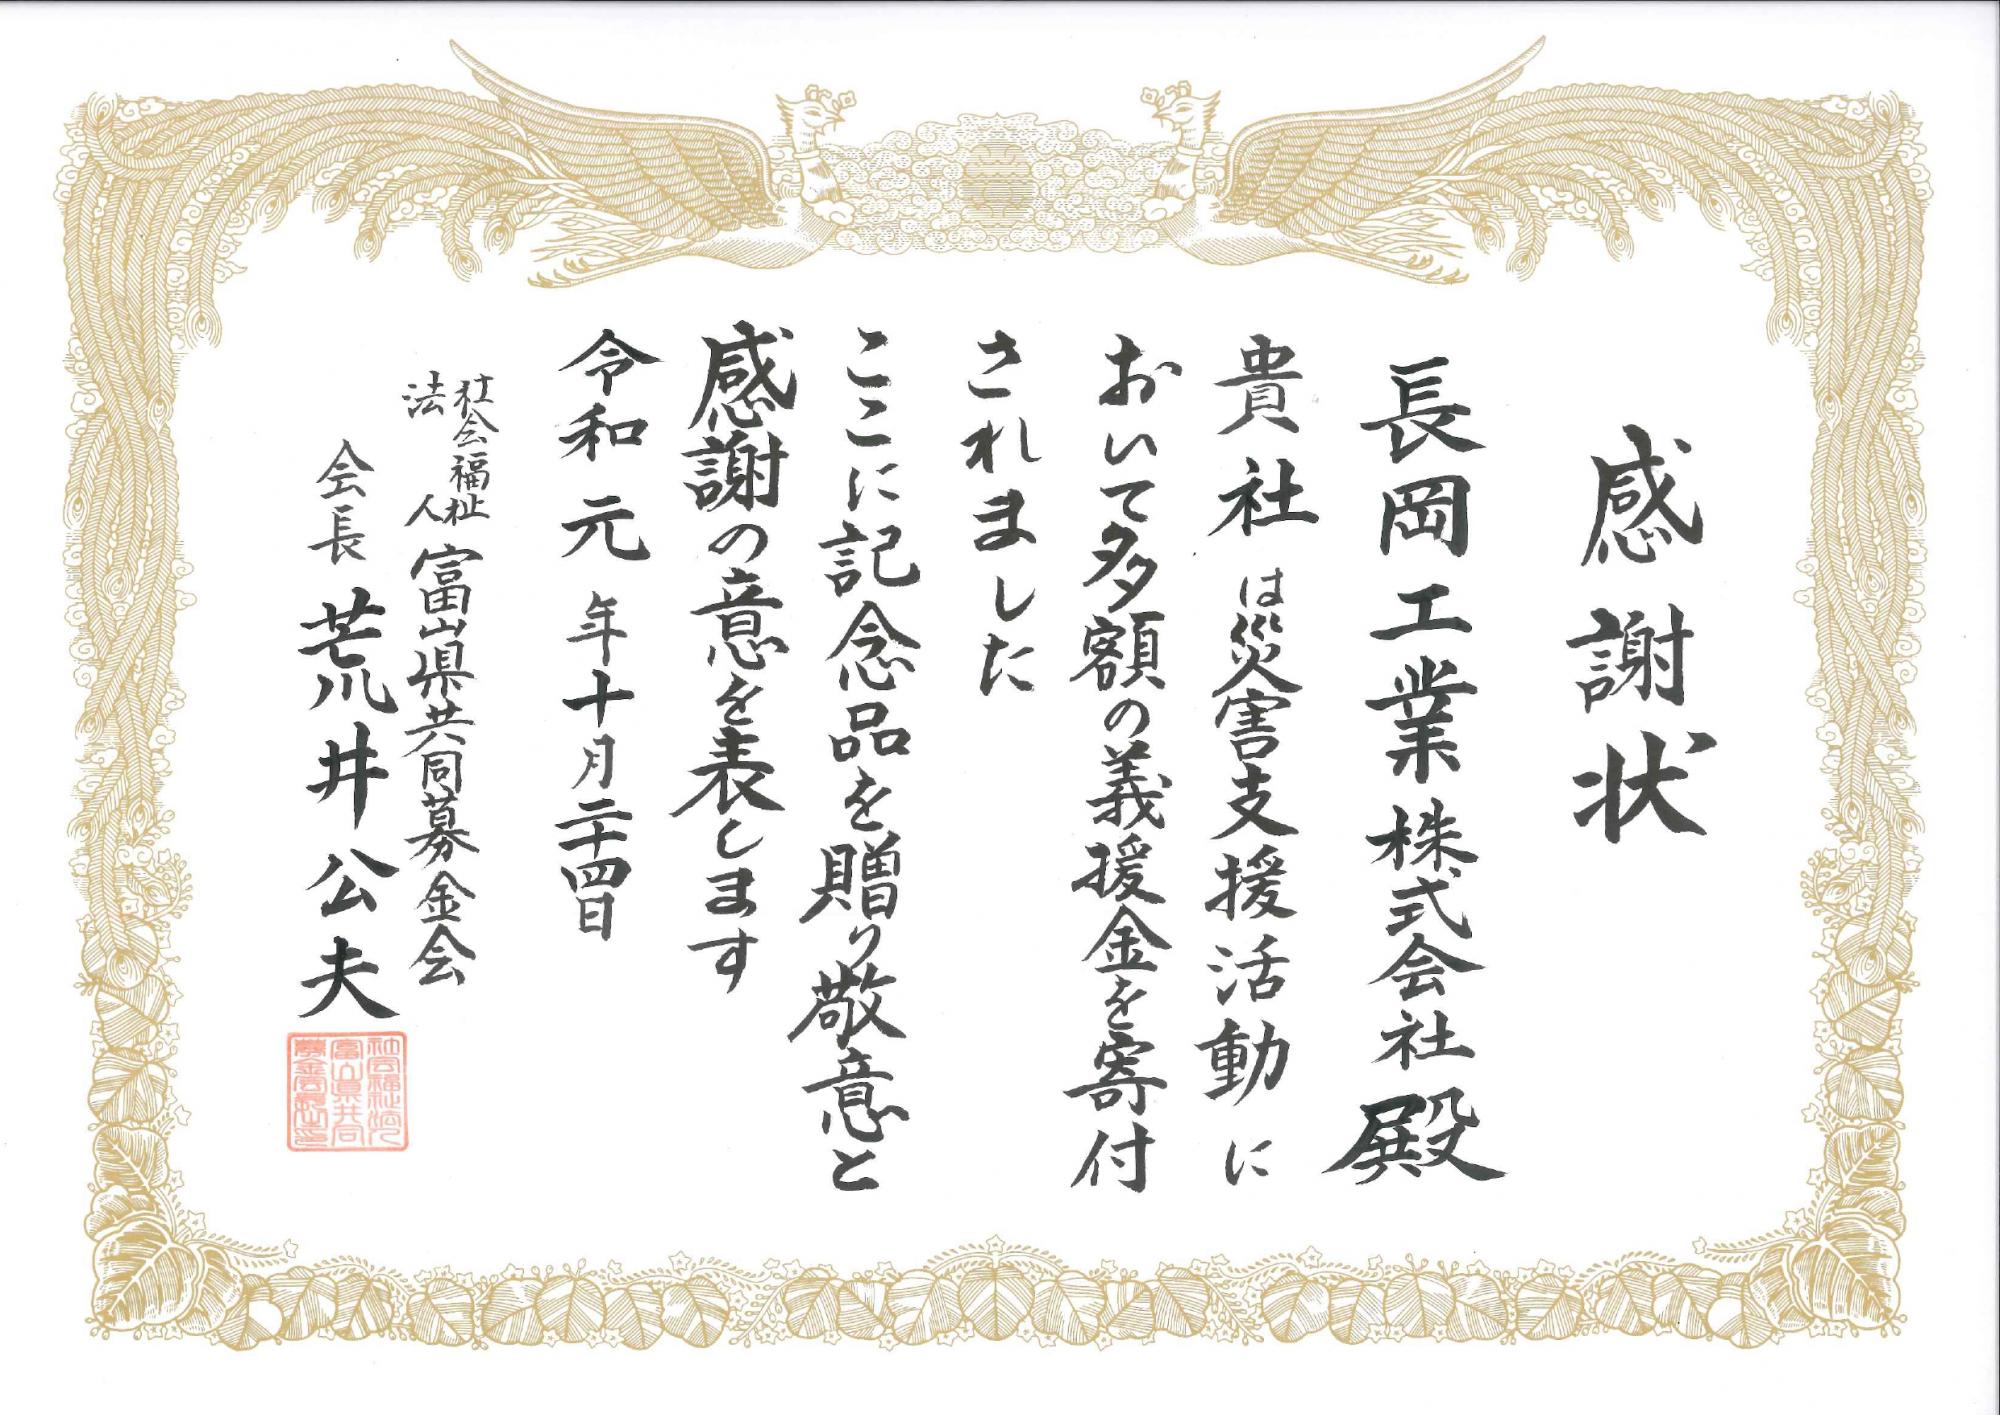 感謝状
長岡工業株式会社殿
貴社は災害支援活動に
おいて多額の義援金を寄付
されました
ここに記念品を贈り敬意と
感謝の意を表します
令和元年十月二十四日
社会福祉法人富山県共同募金会
会長 荒井公夫
社会福祉法人
富山県共同
募金会会長之印